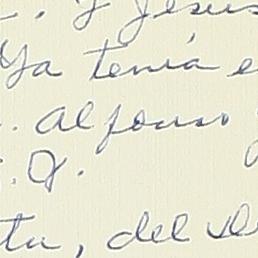 . y Jesús
Ya tenía e
. Alfonso y
. Q.
ta, del